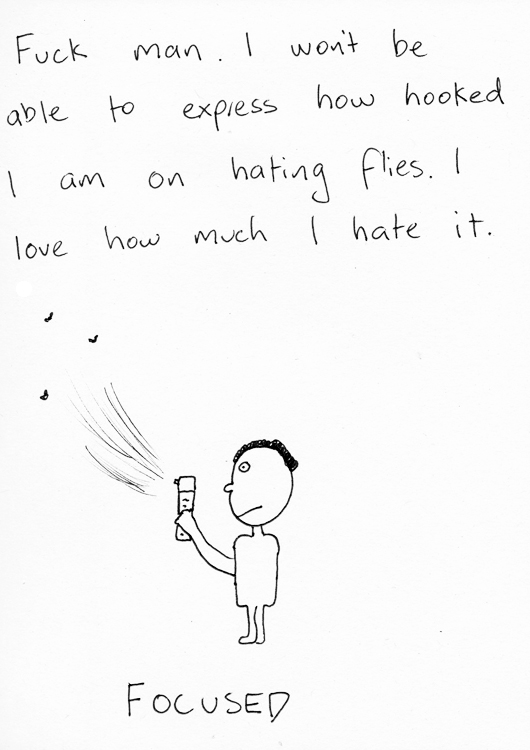 Fuck man. I won't be
able to express how hooked
I am on hating flies. I
love how much I hate it.
FOCUSED